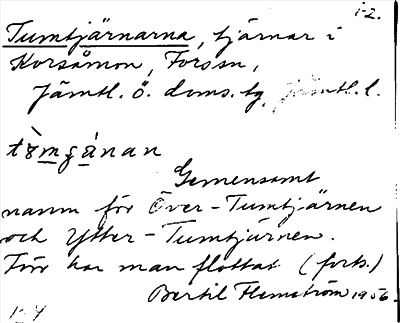 1-2.
Tumtjärnarna, tjärnar i
Korsåmon, Forssn,
Jämtl. ö. doms. tg, Jämtl. l.
Gemensamt
namn för Över-Tumtjärnen
och Ytter-Tumtjärnen.
Förr har man flottat (forts.)
Bertil Flemström 1956.